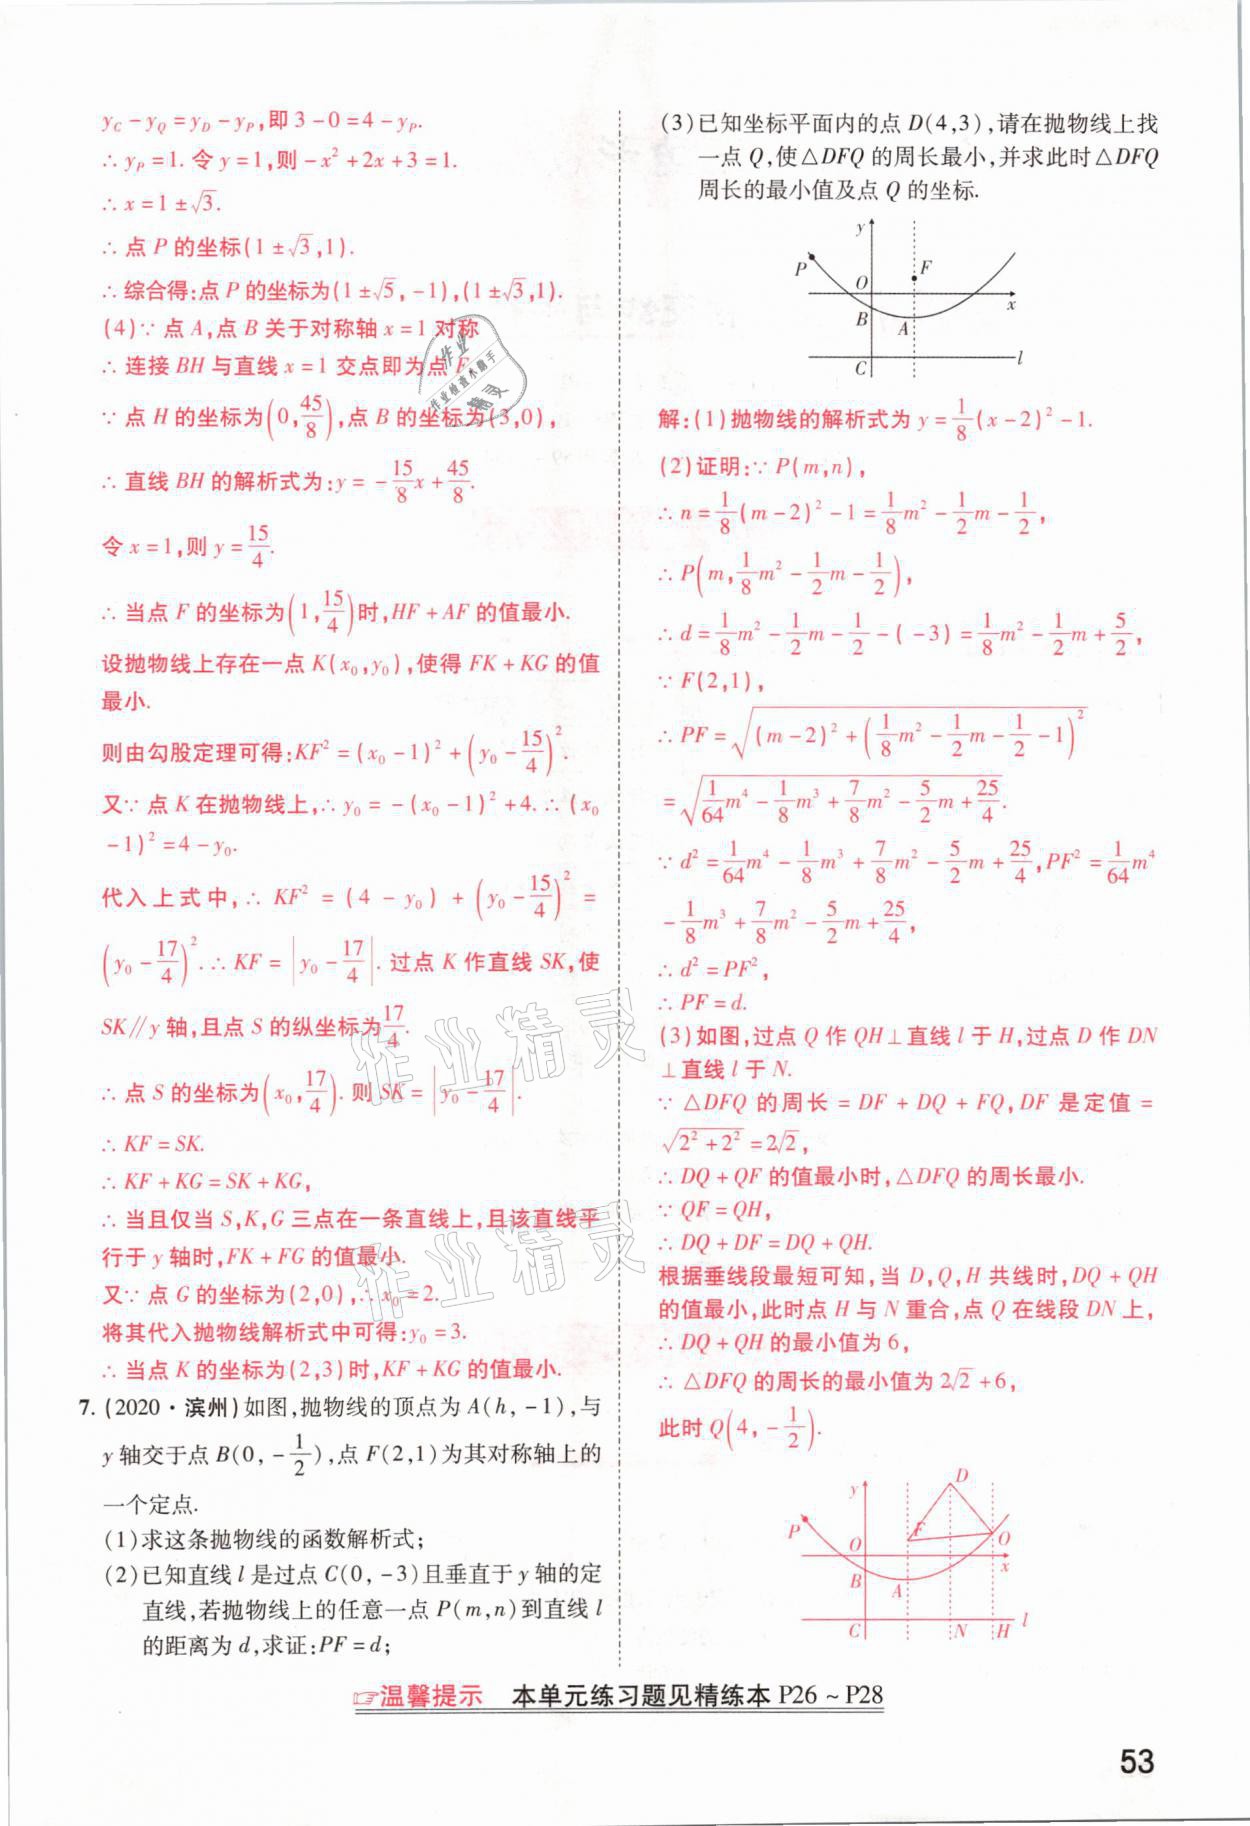 y_C - y_Q = y_D - y_P,即 3 - 0 = 4 - y_P.
∴ y_P = 1. 令 y = 1,则 -x² + 2x + 3 = 1.
∴ x = 1 ± √3.
∴ 点 P 的坐标(1 ± √3,1).
∴ 综合得:点 P 的坐标为(1 ± √5, -1),(1 ± √3,1).
(4)∵ 点 A,点 B 关于对称轴 x = 1 对称
∴ 连接 BH 与直线 x = 1 交点即为点 F
∵ 点 H 的坐标为(0,45/8),点 B 的坐标为(3,0),
∴ 直线 BH 的解析式为:y = -15/8 x + 45/8.
令 x = 1,则 y = 15/4.
∴ 当点 F 的坐标为(1,15/4)时,HF + AF 的值最小.
设抛物线上存在一点 K(x₀,y₀),使得 FK + KG 的值
最小.
则由勾股定理可得:KF² = (x₀ - 1)² + (y₀ - 15/4)².
又∵ 点 K 在抛物线上,∴ y₀ = -(x₀ - 1)² + 4. ∴ (x₀
- 1)² = 4 - y₀.
代入上式中,∴ KF² = (4 - y₀) + (y₀ - 15/4)² =
(y₀ - 17/4)². ∴ KF = |y₀ - 17/4|. 过点 K 作直线 SK,使
SK∥y 轴,且点 S 的纵坐标为17/4.
∴ 点 S 的坐标为(x₀,17/4). 则 SK = |y₀ - 17/4|.
∴ KF = SK.
∴ KF + KG = SK + KG,
∴ 当且仅当 S,K,G 三点在一条直线上,且该直线平
行于 y 轴时,FK + FG 的值最小.
又∵ 点 G 的坐标为(2,0),∴ x₀ = 2.
将其代入抛物线解析式中可得:y₀ = 3.
∴ 当点 K 的坐标为(2,3)时,KF + KG 的值最小.
7. (2020·滨州)如图,抛物线的顶点为 A(h, -1),与
y 轴交于点 B(0, -1/2),点 F(2,1)为其对称轴上的
一个定点.
(1)求这条抛物线的函数解析式;
(2)已知直线 l 是过点 C(0, -3)且垂直于 y 轴的定
直线,若抛物线上的任意一点 P(m,n)到直线 l
的距离为 d,求证:PF = d;
(3)已知坐标平面内的点 D(4,3),请在抛物线上找
一点 Q,使△DFQ 的周长最小,并求此时△DFQ
周长的最小值及点 Q 的坐标.
y
P
F
O
x
B
A
C
l
解:(1)抛物线的解析式为 y = 1/8(x - 2)² - 1.
(2)证明:∵ P(m,n),
∴ n = 1/8(m - 2)² - 1 = 1/8 m² - 1/2 m - 1/2,
∴ P(m,1/8 m² - 1/2 m - 1/2),
∴ d = 1/8 m² - 1/2 m - 1/2 - ( -3) = 1/8 m² - 1/2 m + 5/2,
∵ F(2,1),
∴ PF = √((m - 2)² + (1/8 m² - 1/2 m - 1/2 - 1)²)
= √(1/64 m⁴ - 1/8 m³ + 7/8 m² - 5/2 m + 25/4).
∵ d² = 1/64 m⁴ - 1/8 m³ + 7/8 m² - 5/2 m + 25/4,PF² = 1/64 m⁴
- 1/8 m³ + 7/8 m² - 5/2 m + 25/4,
∴ d² = PF²,
∴ PF = d.
(3)如图,过点 Q 作 QH⊥直线 l 于 H,过点 D 作 DN
⊥直线 l 于 N.
∵ △DFQ 的周长 = DF + DQ + FQ,DF 是定值 =
√(2² + 2²) = 2√2,
∴ DQ + QF 的值最小时,△DFQ 的周长最小.
∵ QF = QH,
∴ DQ + DF = DQ + QH.
根据垂线段最短可知,当 D,Q,H 共线时,DQ + QH
的值最小,此时点 H 与 N 重合,点 Q 在线段 DN 上,
∴ DQ + QH 的最小值为 6,
∴ △DFQ 的周长的最小值为 2√2 + 6,
此时 Q(4, -1/2).
y
D
P
F
Q
O
x
B
A
C
N
H
l
☞温馨提示 本单元练习题见精练本 P26 ~ P28
53
作业
作业检查小助手
精灵
作业精灵
作业精灵